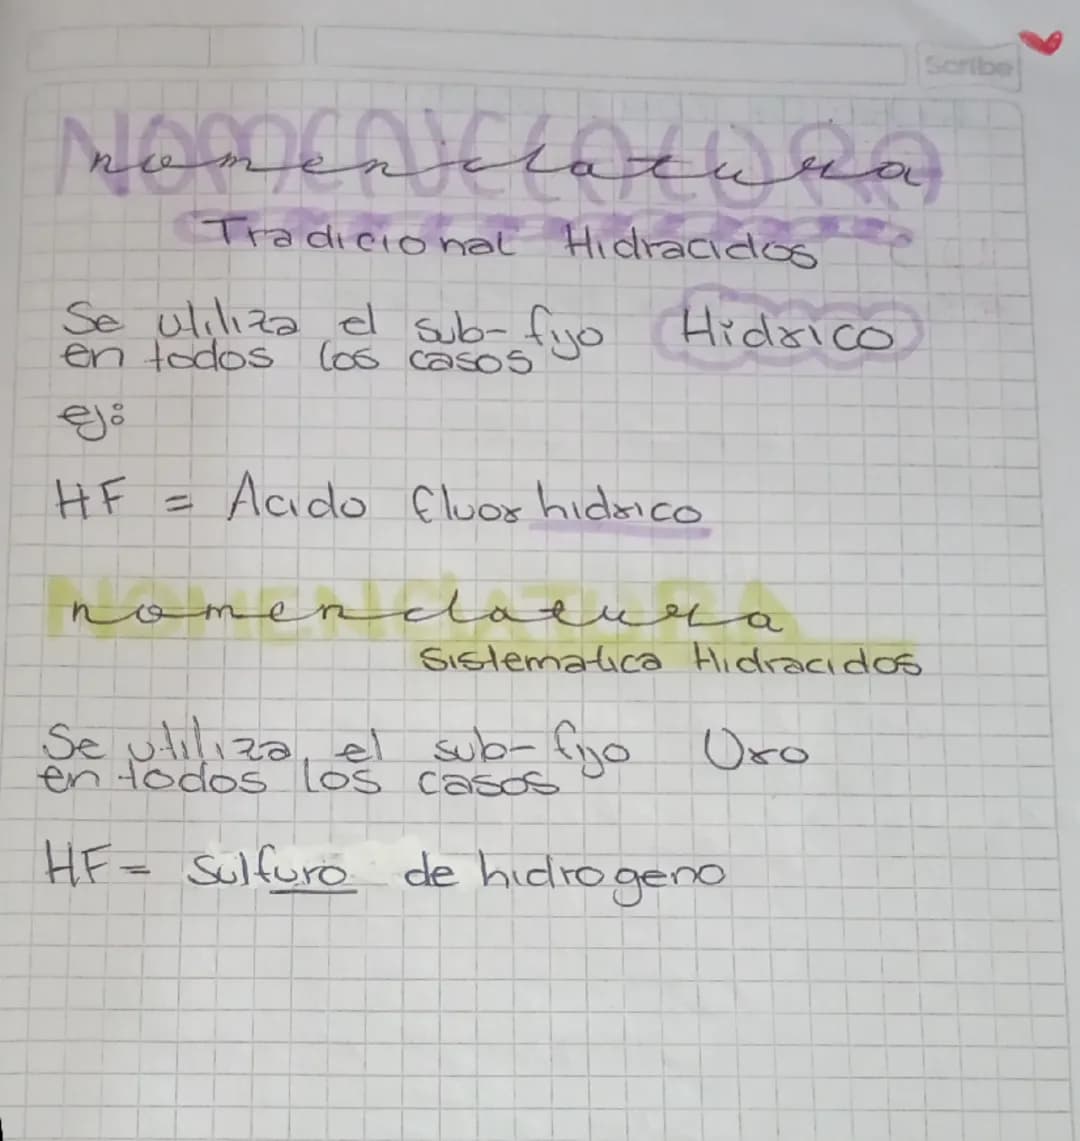 Scribe
NOMENCLATURA
nomenclatura
Tradicional Hidracidos
Se utiliza el sub-fijo Hidrico
en todos los casos
ej:
HF = Acido fluorhidrico
NOMENCLATURA
nomenclatura
Sistematica Hidracidos
Se utiliza el sub-fijo Uro
en todos los casos
HF = Sulfuro de hidrogeno